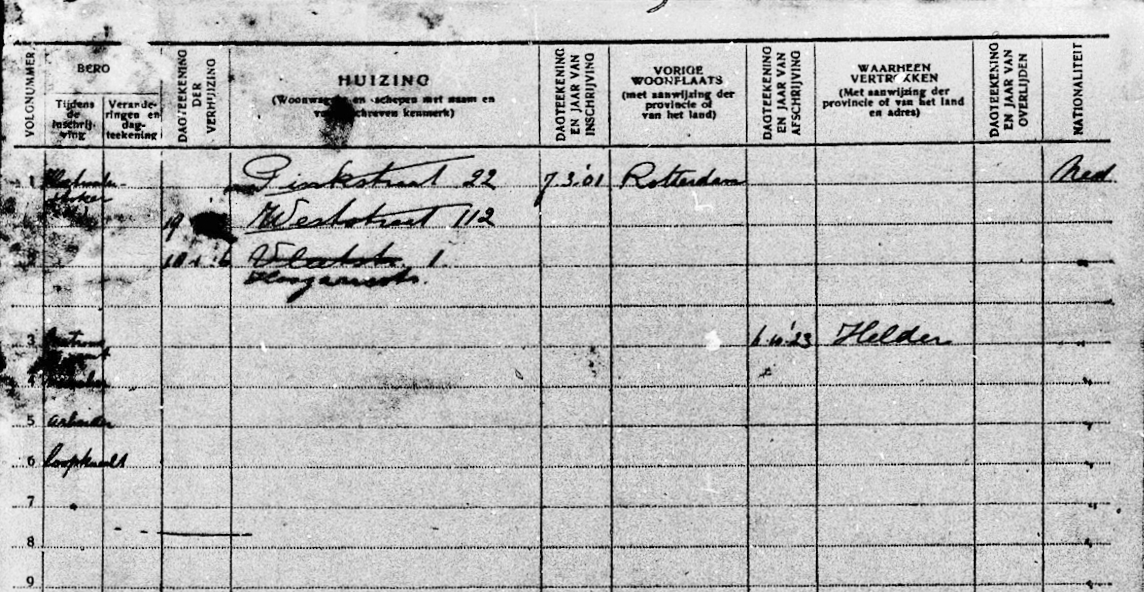 VOLGNUMMER
BERO
Tijdens de inschrij-ving
Verande-ringen en dag-teekening
DAGTEEKENING DER VERHUIZING
HUIZING
(Woonwagens en -schepen met naam en
schreven kenmerk)
DAGTEEKENING EN JAAR VAN INSCHRIJVING
VORIGE WOONPLAATS
(met aanwijzing der provincie of van het land)
DAGTEEKENING EN JAAR VAN AFSCHRIJVING
WAARHEEN VERTROKKEN
(Met aanwijzing der provincie of van het land en adres)
DAGTEEKENING EN JAAR VAN OVERLIJDEN
NATIONALITEIT
1 stoker Pinkstraat 22 7.3.01 Rotterdam Ned
19 Weststraat 112
2 1. "
3 6.10.'23 Helder "
4 "
5 arbeider "
6 loopknecht "
7 "
8 "
9 "